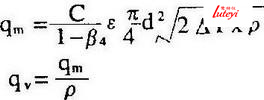 qₘ = C / 1-β₄ ε π/4 d² √2
Luteyi
qᵥ = qₘ / ρ